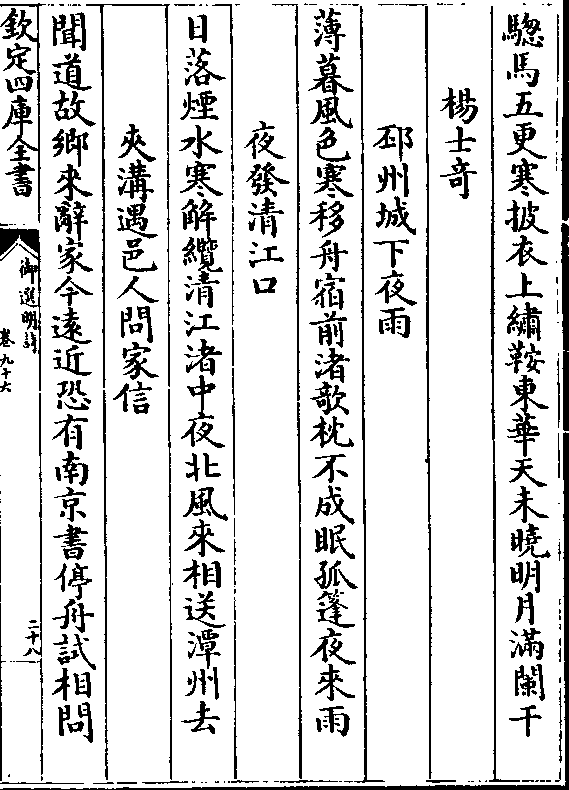 驄馬五更寒披衣上繡鞍東華天未曉明月滿闌干
楊士奇
邳州城下夜雨
薄暮風色寒移舟宿前渚歌枕不成眠孤篷夜來雨
夜發清江口
日落煙水寒解纜清江渚中夜北風來相送潭州去
夾溝遇邑人問家信
聞道故鄉來辭家今遠近恐有南京書停舟試相問
欽定四庫全書
御選明詩
卷九十六
二十八